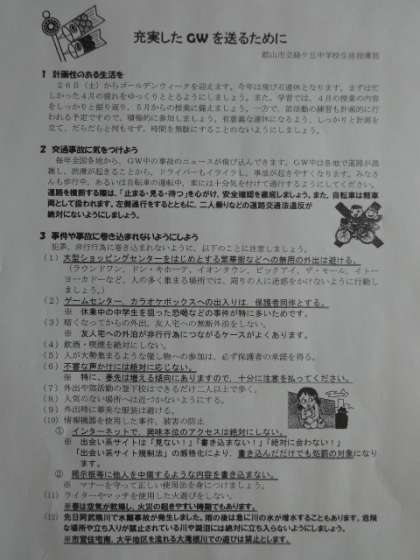 充実した GW を送るために
郡山市立緑ケ丘中学校生徒指導部
1 計画性のある生活を
26日（土）からゴールデンウィークを迎えます。今年は飛び石連休となります。まずは忙
しかった4月の疲れをゆっくりととるようにしましょう。また、学習では、4月の授業の内容
をしっかりと振り返り、5月からの授業に備えましょう。一方で、部活動の練習も計画的に行
われる予定ですので、積極的に参加しましょう。有意義な連休になるよう、しっかりと計画を
立て、だらだらと何もせず、時間を無駄にすることのないようにしましょう。
2 交通事故に気をつけよう
毎年全国各地から、GW中の事故のニュースが飛び込んできます。GW中は各地で道路が混
雑し、渋滞が起きることから、ドライバーもイライラし、事故が起きやすくなります。みなさ
んも歩行中、あるいは自転車の運転中、車には十分気を付けて通行するようにしてください。
道路を横断する際は、「止まる・見る・待つ」を心がけ、安全確認を徹底しましょう。また、自転車は軽車
両として扱われます。左側通行をするとともに、二人乗りなどの道路交通法違反が
絶対にないようにしましょう。
3 事件や事故に巻き込まれないようにしよう
犯罪、非行行為に巻き込まれないように、以下のことに注意しましょう。
(1) 大型ショッピングセンターをはじめとする繁華街などへの無用の外出は避ける。
（ラウンドワン、ドン・キホーテ、イオンタウン、ビックアイ、ザ・モール、イトー
ヨーカドーなど、人の多く集まる場所では、周りの人に迷惑をかけないように行動し
ましょう。）
(2) ゲームセンター、カラオケボックスへの出入りは、保護者同伴とする。
※ 休業中の中学生を狙った恐喝などの事件が特に多いためです。
(3) 暗くなってからの外出、友人宅への無断外泊をしない。
※ 友人宅への外泊が非行行為につながるケースがよくあります。
(4) 飲酒・喫煙を絶対にしない。
(5) 人が大勢集まるような催し物への参加は、必ず保護者の承諾を得る。
(6) 不審な声かけには絶対に応じない。
※ 特に、春先は増える傾向にありますので、十分に注意を払ってください。
(7) 外出や部活動の登下校はできるだけ二人以上で歩く。
(8) 人気のない場所へは近づかないようにする。
(9) 外出時に華美な服装は避ける。
(10) 情報機器を使用した事件、被害の防止
① インターネットで、興味本位のアクセスは絶対にしない。
※ 出会い系サイトは「見ない！」「書き込まない！」「絶対に会わない！」
「出会い系サイト規制法」の厳格化により、書き込んだだけでも処罰の対象になり
ます。
② 掲示板等に他人を中傷するような内容を書き込まない。
※ マナーを守って正しい使用法を身につけましょう。
(11) ライターやマッチを使用した火遊びをしない。
※春は空気が乾燥し、火災の起きやすい時期でもあります。
(12) 先日阿武隈川で水難事故が発生しました。雨の後は急に川の水が増水することもあります。危険
な場所や立ち入りが禁止されている川や調整池には絶対に立ち入らないようにしましょう。
※市営住宅南、大平地区を流れる大滝根川での遊びは禁止とします。